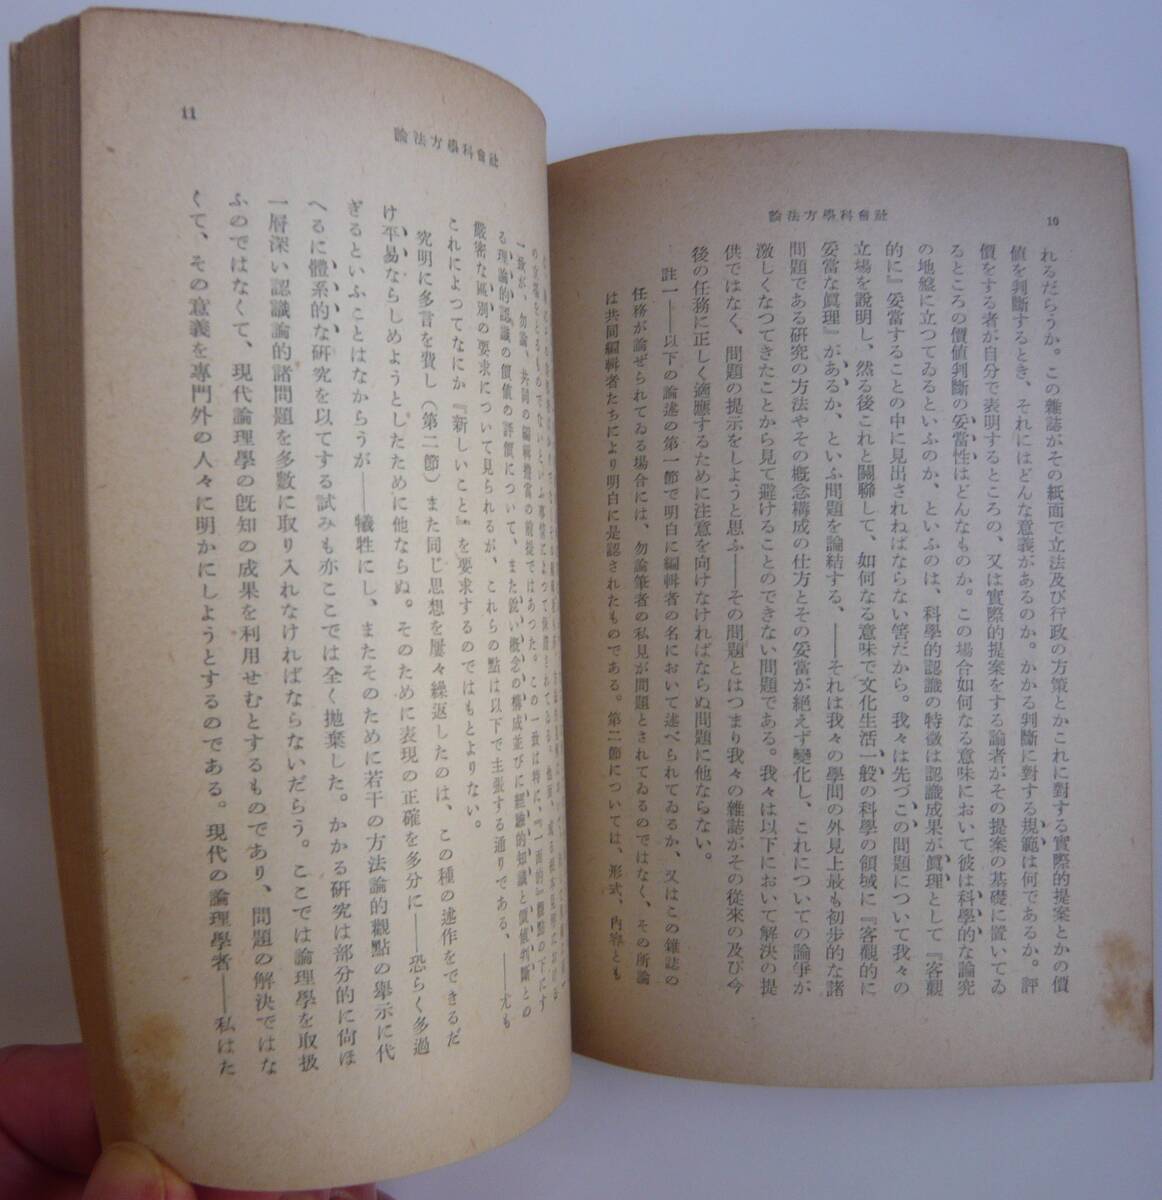 10
社會科學方法論
れるだらうか。この雜誌がその紙面で立法及び行政の方策とかこれに對する實際的提案とかの價
値を判斷するとき、それにはどんな意義があるのか。かかる判斷に對する規範は何であるか。評
價をする者が自分で表明するところの、又は實際的提案をする論者がその提案の基礎に置いてゐ
るところの價値判斷の妥當性はどんなものか。この場合如何なる意味において彼は科學的な論究
の地盤に立つてゐるといふのか、といふのは、科學的認識の特徴は認識成果が眞理として『客觀
的に』妥當することの中に見出されねばならない筈だから。我々は先づこの問題について我々の
立場を說明し、然る後これと關聯して、如何なる意味で文化生活一般の科學の領域に『客觀的に
妥當な眞理』があるか、といふ問題を論結する、――それは我々の學問の外見上最も初步的な諸
問題である硏究の方法やその概念構成の仕方とその妥當が絕えず變化し、これについての論爭が
激しくなつてきたことから見て避けることのできない問題である。我々は以下において解決の提
供ではなく、問題の提示をしようと思ふ――その問題とはつまり我々の雜誌がその從來の及び今
後の任務に正しく適應するために注意を向けなければならぬ問題に他ならない。
註一――以下の論述の第一節で明白に編輯者の名において述べられてゐるか、又はこの雜誌の
任務が論ぜられてゐる場合には、勿論筆者の私見が問題とされてゐるのではなく、その所論
は共同編輯者たちにより明白に是認されたものである。第二節については、形式、內容とも
11
社會科學方法論
一致が、勿論、共同の編輯擔當の前提ではあつた。この一致は特に、『一面的』觀點の下にす
る理論的認識の價値の評價について、また銳い概念の構成並びに經驗的知識と價値判斷との
嚴密な區別の要求について見られるが、これらの點は以下で主張する通りである、――尤も
これによつてなにか『新しいこと』を要求するのではもとよりない。
究明に多言を費し（第二節）また同じ思想を屢々繰返したのは、この種の述作をできるだ
け平易ならしめようとしたために他ならぬ。そのために表現の正確を多分に――恐らく多過
ぎるといふことはなからうが　犧牲にし、またそのために若干の方法論的觀點の舉示に代
へるに體系的な硏究を以てする試みも亦ここでは全く拋棄した。かかる硏究は部分的に尙ほ
一層深い認識論的諸問題を多數に取り入れなければならないだらう。ここでは論理學を取扱
ふのではなくて、現代論理學の旣知の成果を利用せむとするものであり、問題の解決ではな
くて、その意義を專門外の人々に明かにしようとするのである。現代の論理學者――私はた